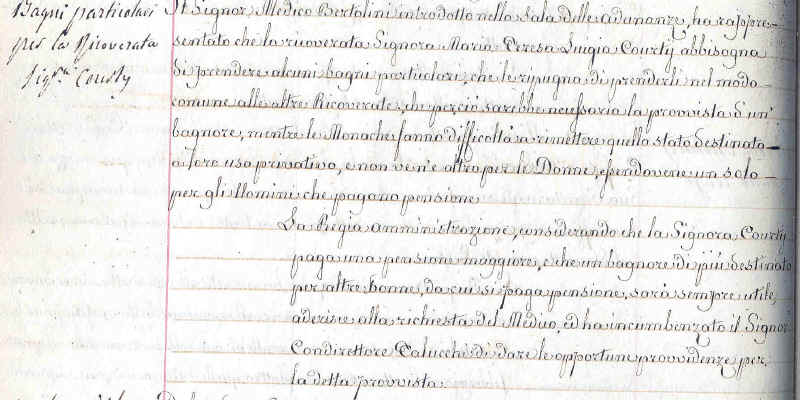 Bagni particolari
per la Ricoverata
Sig.ra Courty
Il Signor Medico Bertolini introdotto nella Sala delle adunanze, ha rappre-
sentato che la ricoverata Signora Maria Teresa Luigia Courty abbisogna
di prendere alcuni bagni particolari, che le ripugna di prenderli nel modo
comune alle altre Ricoverate, che perciò sarebbe necessario la provvista d'un'
bagnore, mentre le Monache fanno difficoltà a rimettere quello stato destinato
a loro uso privativo, e non ven'è altro per le Donne, essendovene un solo
per gli Uomini che pagono pensione.
La Regia amministrazione, considerando che la Signora Courty
paga una pensione maggiore, e che un bagnore di più destinato
per altre Donne, da cui si paga pensione, sarà sempre utile,
aderisce alla richiesta del Medico, ed ha incumbenzato il Signor
Condirettore Calucchi di dare le opportune provvidenze per
la detta provvista.